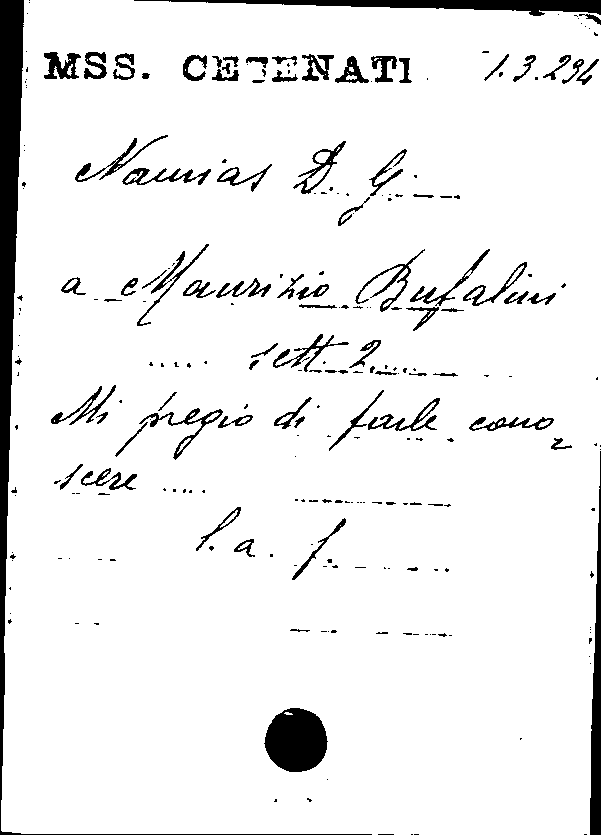 MSS. CESENATI 1.3.234
Namias D. G.
a Maurizio Bufalini
..... sett. 2....
Mi pregio di farle cono-
scere .....
l. a. f.